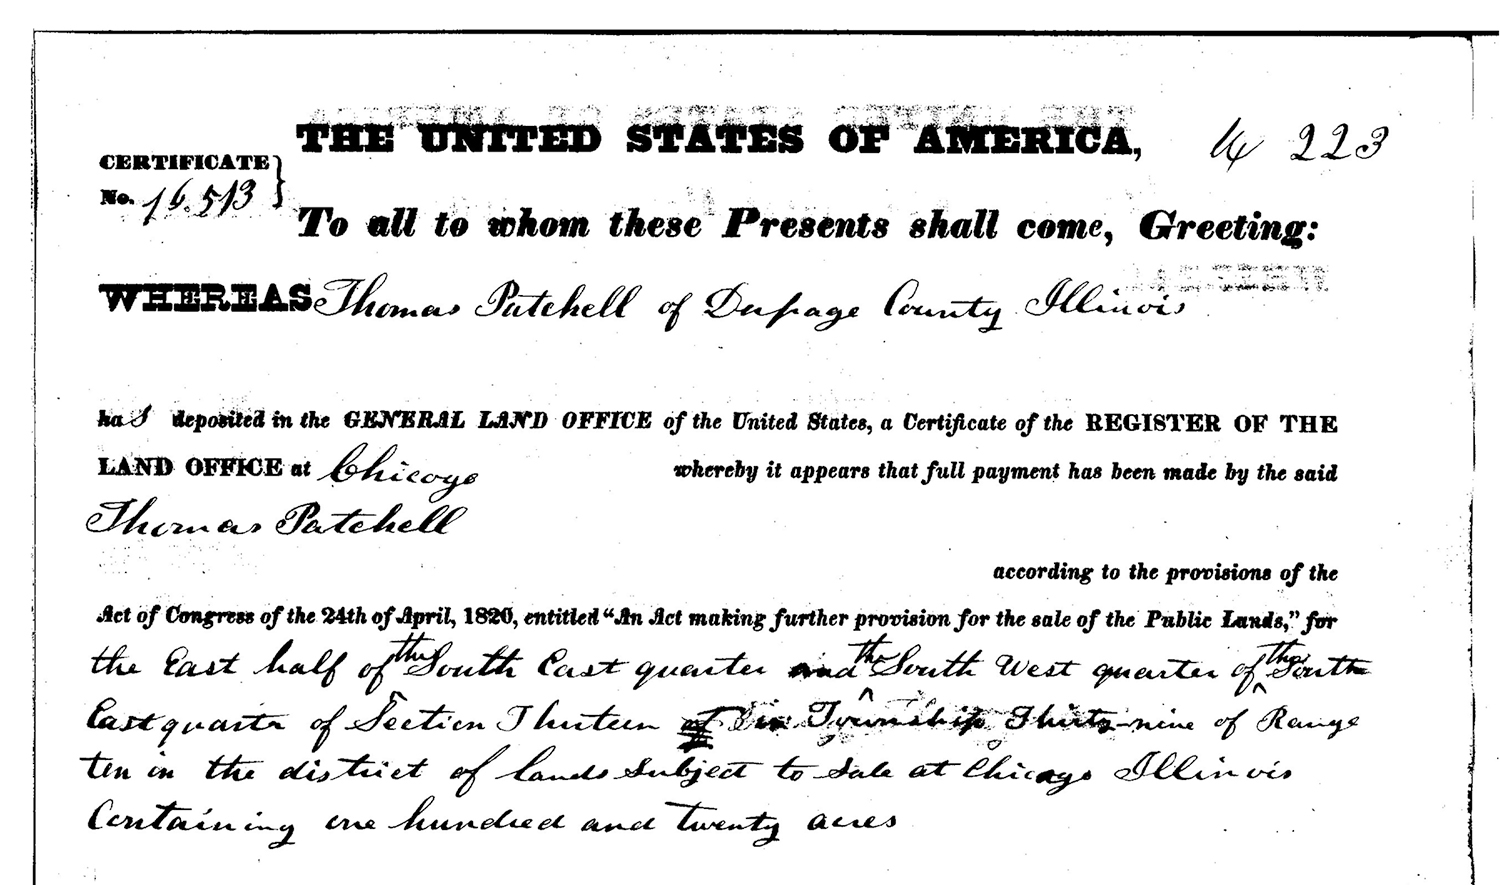 THE UNITED STATES OF AMERICA, 223
CERTIFICATE
No. 16.513
To all to whom these Presents shall come, Greeting:
WHEREAS Thomas Patchell of Dupage County Illinois
ha s deposited in the GENERAL LAND OFFICE of the United States, a Certificate of the REGISTER OF THE
LAND OFFICE at Chicago whereby it appears that full payment has been made by the said
Thomas Patchell
according to the provisions of the
Act of Congress of the 24th of April, 1820, entitled “An Act making further provision for the sale of the Public Lands,” for
the East half of the South East quarter and the South West quarter of the South
East quarter of Section Thirteen in Township Thirty-nine of Range
ten in the district of lands subject to sale at Chicago Illinois
Containing one hundred and twenty acres